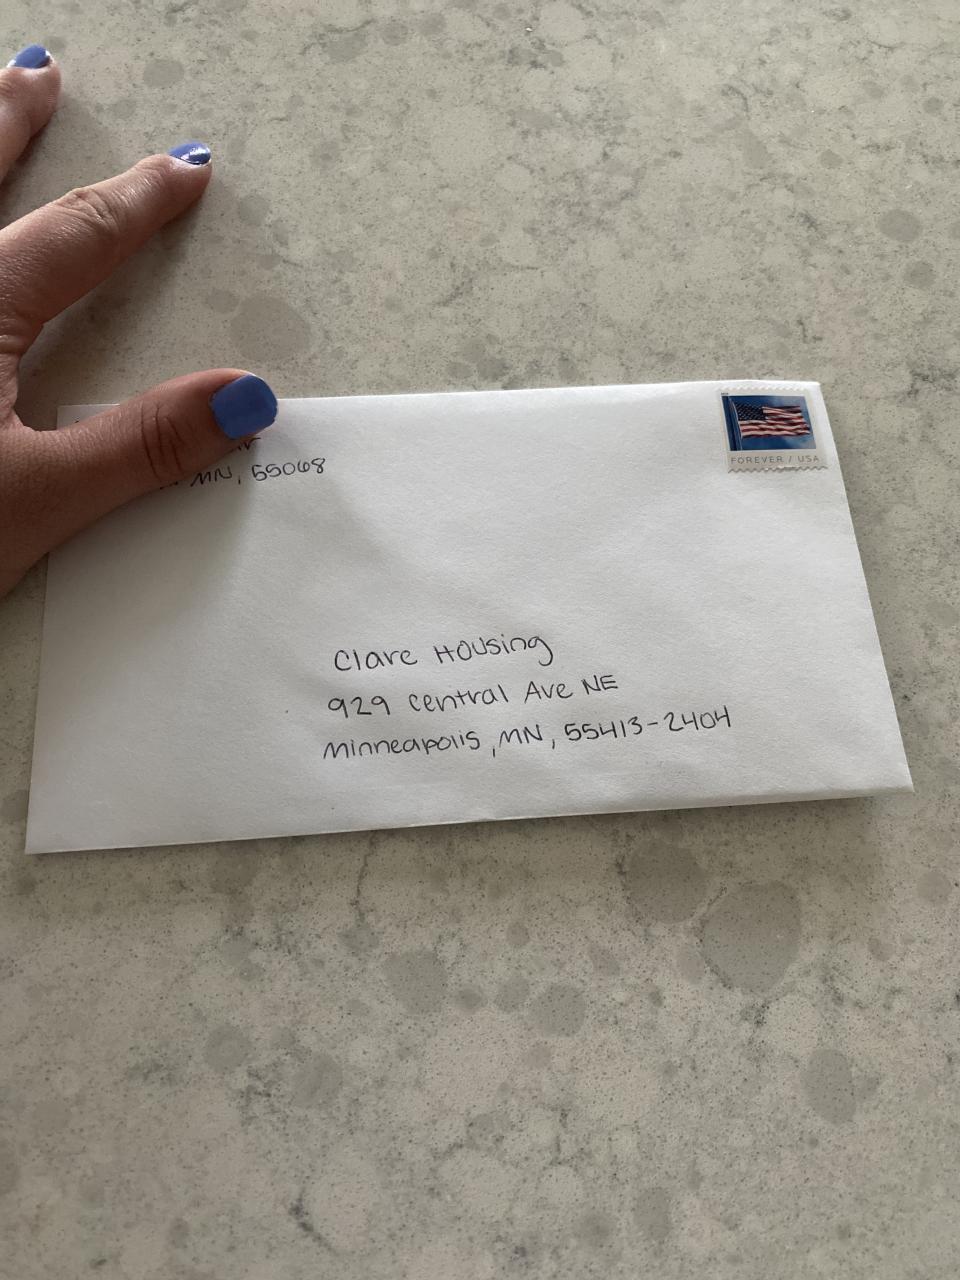 MN, 55068
FOREVER / USA
Clare Housing
929 Central Ave NE
Minneapolis, MN, 55413-2404